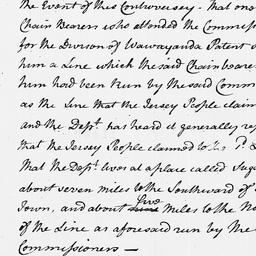 the Event of this Controversey - that one
Chain Bearers who attended the Commiss
for the Division of Wawayanda Patent s
him a Line which the said Chain beare
him had been run by the said Comm
as the Line that the Jersey People claim
and the Dept. has heard it generally rep
that the Jersey People claimed to
That the Dept. lives at a place called Suga
about seven miles to the Southward of
Town, and about five miles to the No
of the Line as aforesaid run by the
Commissioners —